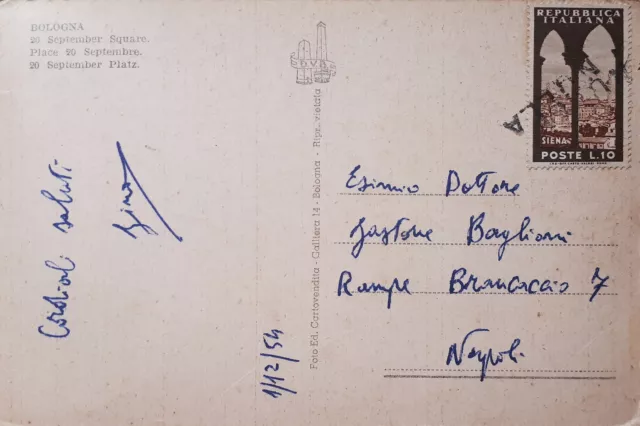 BOLOGNA
20 September Square.
Place 20 Septembre.
20 September Platz.
D.V.B.
Foto Ed. Cartovendita - Galliera 14 - Bologna - Ripr. vietata
Cordiali saluti
Gino
1/12/54
REPUBBLICA
ITALIANA
SIENA
POSTE L.10
Esimio Dottore
Gastone Baglioni
Rampe Brancaccio 7
Napoli